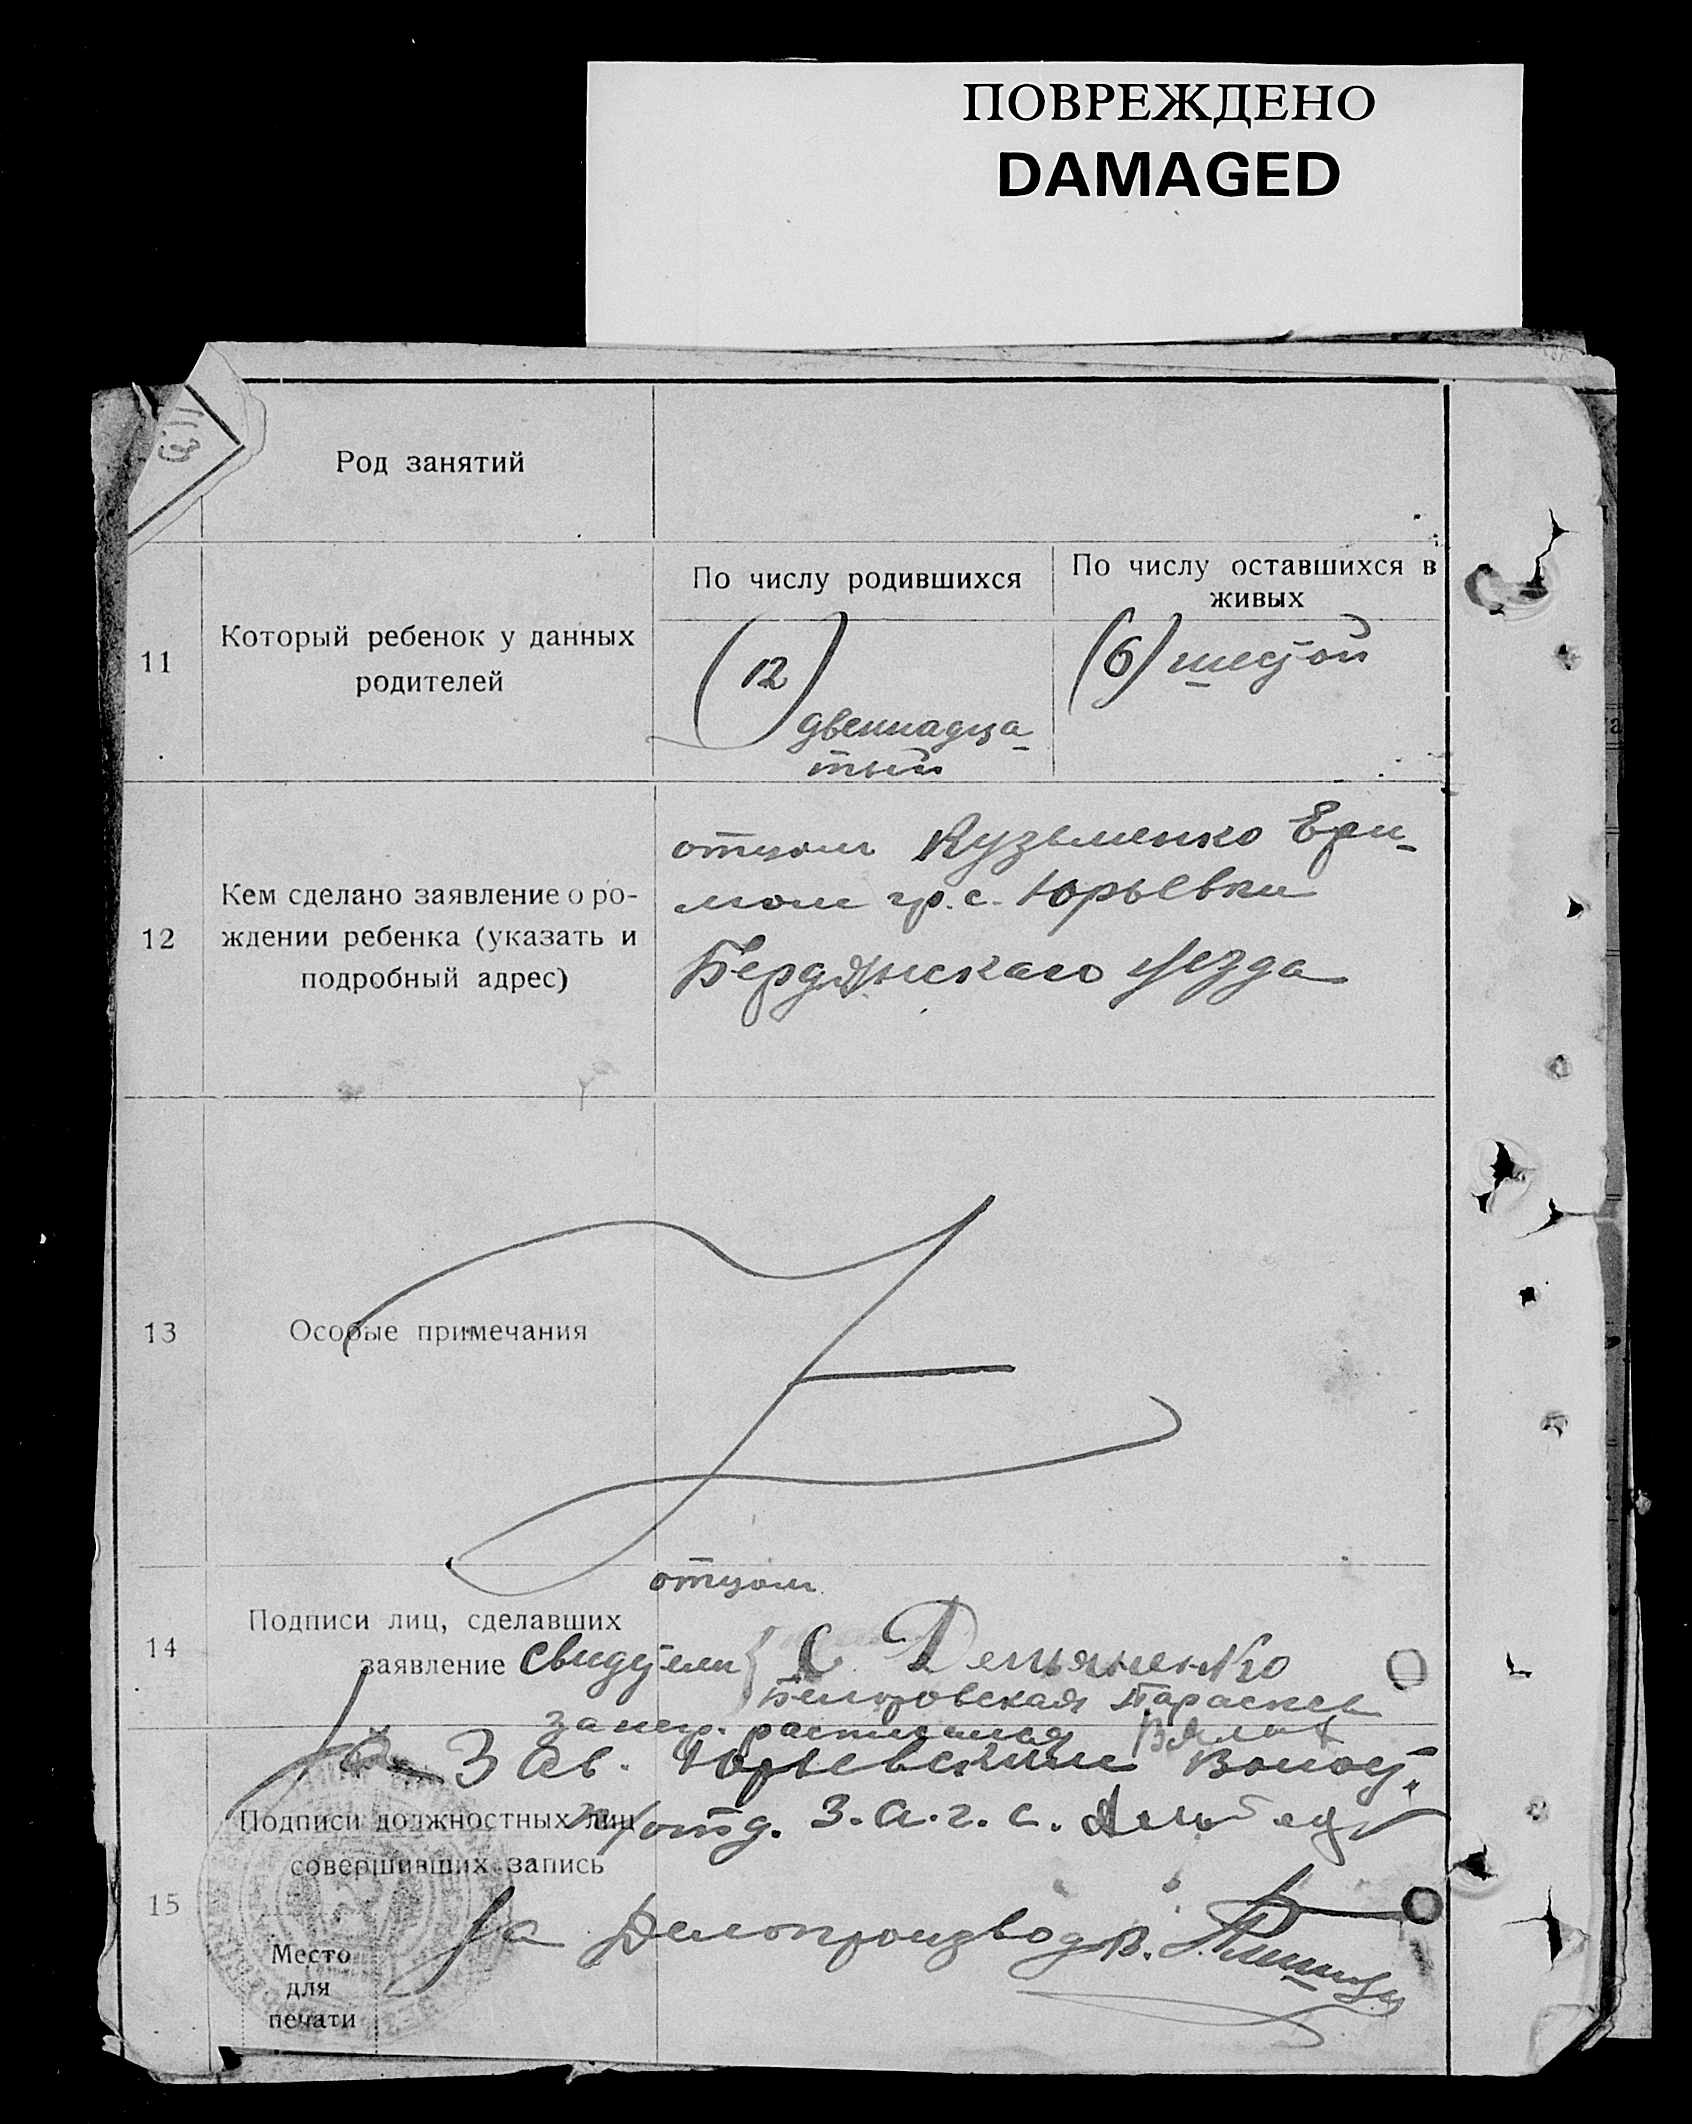 ПОВРЕЖДЕНО
DAMAGED
Род занятий
11
Который ребенок у данных
родителей
По числу родившихся
(12)
двеннадца-
тый
По числу оставшихся в
живых
(6) шестой
12
Кем сделано заявление о ро-
ждении ребенка (указать и
подробный адрес)
отцом Кузьменко Ери-
мом гр. с. Юрьевки
Бердянскаго уезда
13
Особые примечания
14
Подписи лиц, сделавших
заявление
отцом
свидетели С Демьяненко
за негр. расписался
Зав. Юрьевским Волос.
отд. З.а.г.с.
15
Подписи должностных лиц
совершивших запись
За Делопроизвод.
Место
для
печати